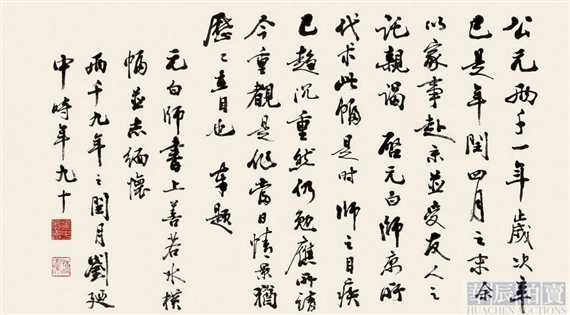 公元兩千一年歲次辛
巳是年閏四月之末余
以家事赴京並受友人之
託親謁啓元白師京所
代求此幀是時師之目疾
已趨沉重然仍勉應所請
今重觀是作當日情景猶
歷歷在目也 奉題
元白師書上善若水橫
幅並志緬懷
兩千九年之閏月劉迺
中時年九十
華辰拍賣
HUACHEN AUCTIONS